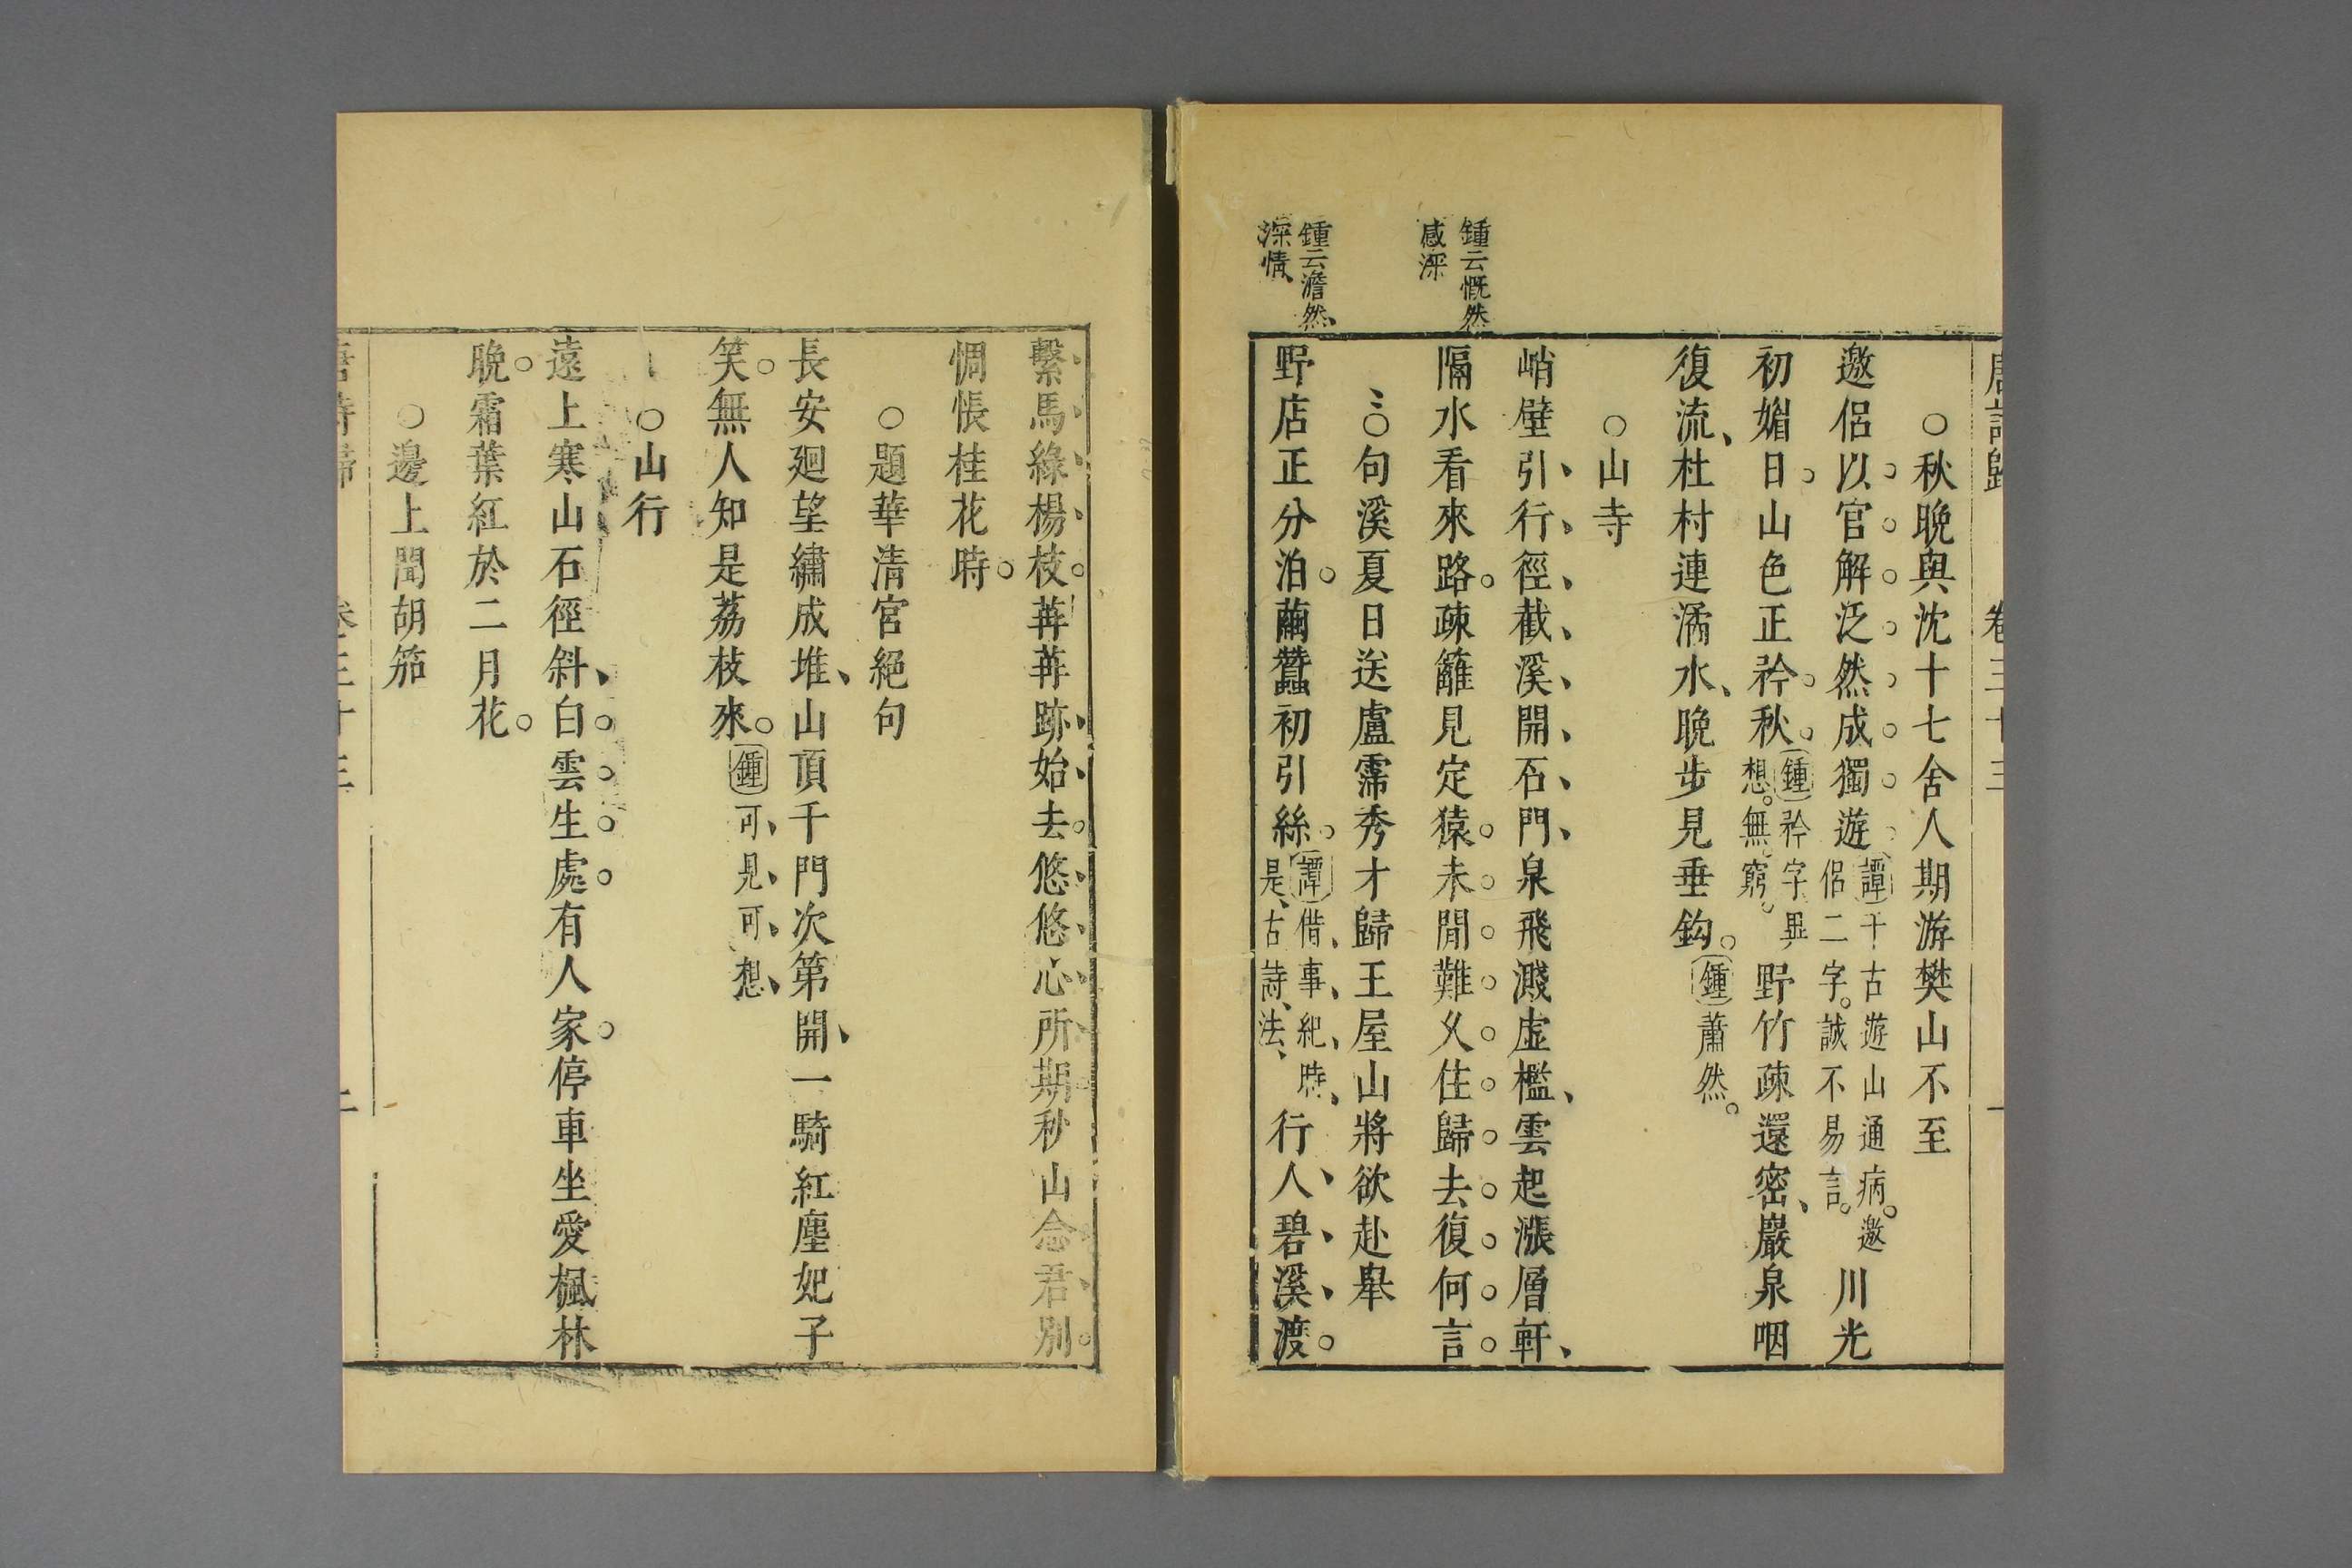 唐詩歸 卷三十三 一
○秋晚與沈十七舍人期游樊山不至
邀侶以官解泛然成獨遊譚千古遊山通病邀侶二字誠不易言川光
初媚日山色正矜秋鍾矜字異想無窮野竹疎還密巖泉咽
復流杜村連潏水晚步見垂鈎鍾蕭然
○山寺
峭壁引行徑截溪開石門泉飛濺虚檻雲起漲層軒
隔水看來路疎籬見定猿未閒難久住歸去復何言
鍾云慨然
感深
○句溪夏日送盧霈秀才歸王屋山將欲赴舉
野店正分泊繭蠶初引絲譚借事紀時是古詩法行人碧溪渡
鍾云澹然
深情
繫馬綠楊枝苒苒跡始去悠悠心所期秒山念君別
惆悵桂花時
○題華清宮絕句
長安廻望繡成堆山頂千門次第開一騎紅塵妃子
笑無人知是荔枝來鍾可見可想
○山行
遠上寒山石徑斜白雲生處有人家停車坐愛楓林
晚霜葉紅於二月花
○邊上聞胡笳
唐詩歸 卷三十三 二